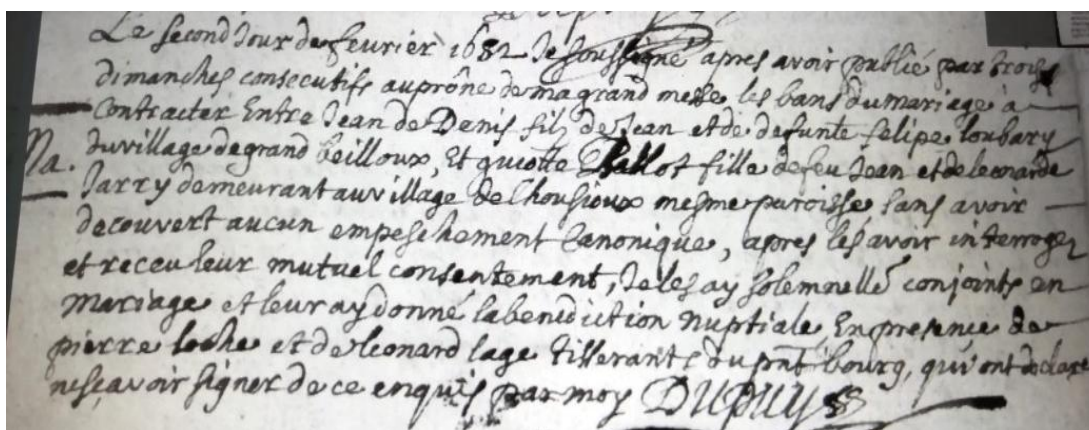 Le second Jour de fevrier 1682 Je soussigné apres avoir publié par trois
dimanches consecutifs au prône de ma grand messe les bans du mariage à
contracter Entre Jean de Denis fils de Jean et de defunte felipe loubary
Na. du village de grand beilloux, Et guiotte fille de feu Jean et de leonarde
Jarry demeurant au village de lhousioux mesme paroisse, sans avoir
decouvert aucun empeschement Canonique, apres les avoir interrogez
et receu leur mutuel consentement, Je les ay solemnellé conjoints en
mariage et leur ay donné la benediction nuptiale, En presence de
pierre loche et de leonard lage tisserants du pnt bourg, qui ont declaré
ne sçavoir signer de ce enquis par moy DUPUYS